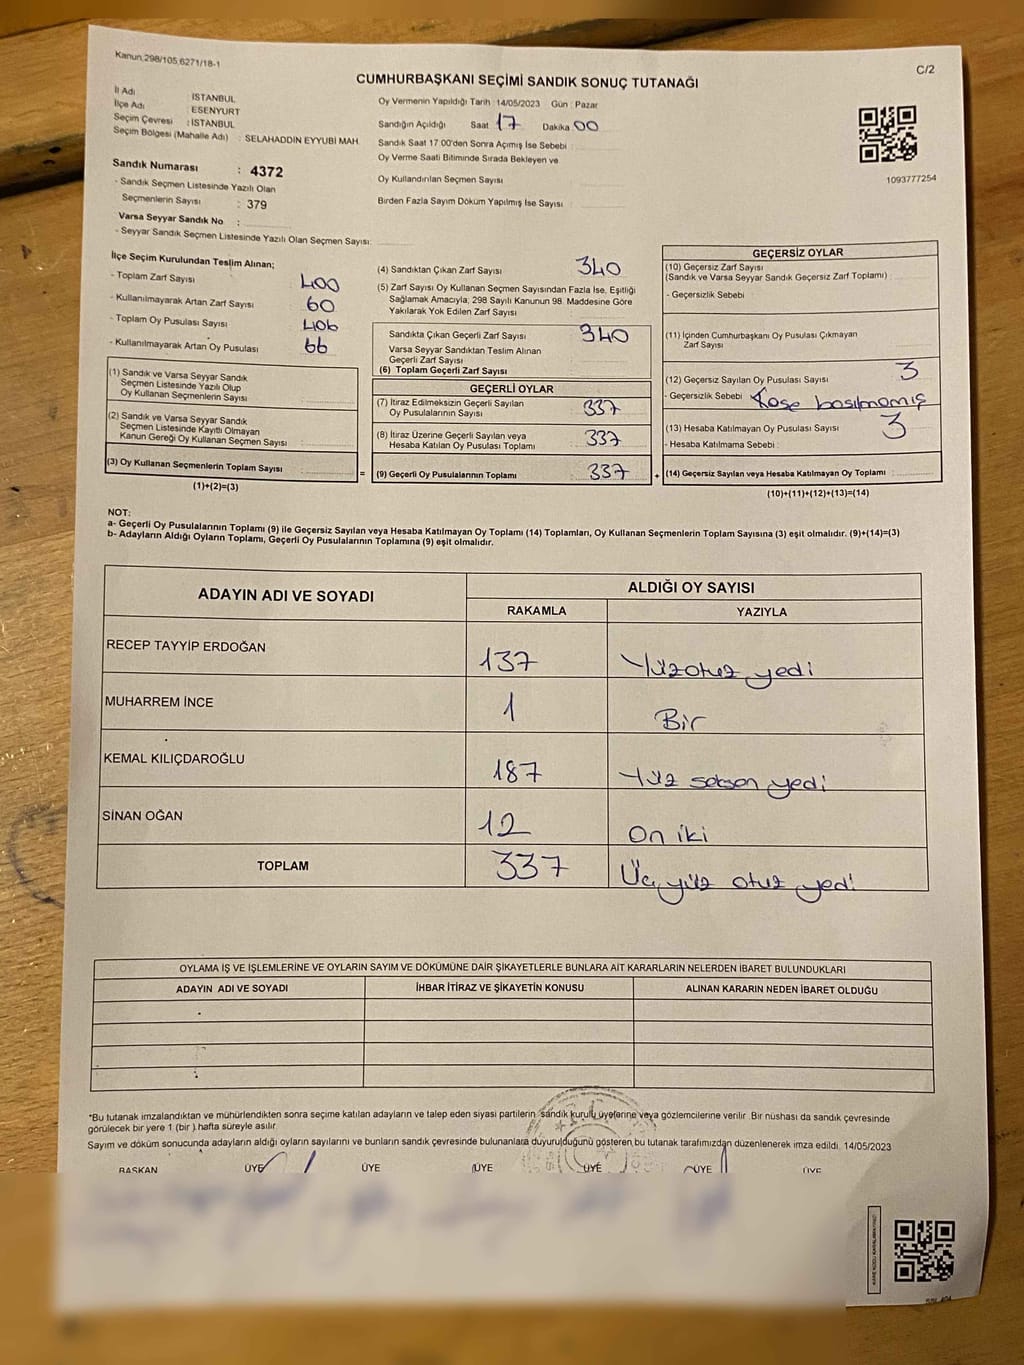 Kanun;298/105,6271/18-1
C/2
CUMHURBAŞKANI SEÇİMİ SANDIK SONUÇ TUTANAĞI
İl Adı : İSTANBUL
İlçe Adı : ESENYURT
Seçim Çevresi : İSTANBUL
Seçim Bölgesi (Mahalle Adı) : SELAHADDİN EYYUBİ MAH.
Oy Vermenin Yapıldığı Tarih : 14/05/2023 Gün : Pazar
Sandığın Açıldığı Saat 17 Dakika 00
Sandık Saat 17.00'den Sonra Açılmış İse Sebebi :
Oy Verme Saati Bitiminde Sırada Bekleyen ve
Oy Kullandırılan Seçmen Sayısı
Birden Fazla Sayım Döküm Yapılmış İse Sayısı :
1093777254
Sandık Numarası : 4372
- Sandık Seçmen Listesinde Yazılı Olan
Seçmenlerin Sayısı : 379
Varsa Seyyar Sandık No :
- Seyyar Sandık Seçmen Listesinde Yazılı Olan Seçmen Sayısı:
İlçe Seçim Kurulundan Teslim Alınan;
- Toplam Zarf Sayısı 400
- Kullanılmayarak Artan Zarf Sayısı 60
- Toplam Oy Pusulası Sayısı 406
- Kullanılmayarak Artan Oy Pusulası 66
(1) Sandık ve Varsa Seyyar Sandık
Seçmen Listesinde Yazılı Olup
Oy Kullanan Seçmenlerin Sayısı
(2) Sandık ve Varsa Seyyar Sandık
Seçmen Listesinde Kayıtlı Olmayan
Kanun Gereği Oy Kullanan Seçmen Sayısı :
(3) Oy Kullanan Seçmenlerin Toplam Sayısı
(1)+(2)=(3)
(4) Sandıktan Çıkan Zarf Sayısı 340
(5) Zarf Sayısı Oy Kullanan Seçmen Sayısından Fazla İse, Eşitliği
Sağlamak Amacıyla; 298 Sayılı Kanunun 98. Maddesine Göre
Yakılarak Yok Edilen Zarf Sayısı
Sandıkta Çıkan Geçerli Zarf Sayısı 340
Varsa Seyyar Sandıktan Teslim Alınan
Geçerli Zarf Sayısı
(6) Toplam Geçerli Zarf Sayısı
GEÇERLİ OYLAR
(7) İtiraz Edilmeksizin Geçerli Sayılan
Oy Pusulalarının Sayısı 337
(8) İtiraz Üzerine Geçerli Sayılan veya
Hesaba Katılan Oy Pusulası Toplamı 337
= (9) Geçerli Oy Pusulalarının Toplamı 337
GEÇERSİZ OYLAR
(10) Geçersiz Zarf Sayısı
(Sandık ve Varsa Seyyar Sandık Geçersiz Zarf Toplamı)
- Geçersizlik Sebebi
(11) İçinden Cumhurbaşkanı Oy Pusulası Çıkmayan
Zarf Sayısı
(12) Geçersiz Sayılan Oy Pusulası Sayısı 3
- Geçersizlik Sebebi Kaşe basılmamış
(13) Hesaba Katılmayan Oy Pusulası Sayısı 3
- Hesaba Katılmama Sebebi :
+ (14) Geçersiz Sayılan veya Hesaba Katılmayan Oy Toplamı
(10)+(11)+(12)+(13)=(14)
NOT:
a- Geçerli Oy Pusulalarının Toplamı (9) ile Geçersiz Sayılan veya Hesaba Katılmayan Oy Toplamı (14) Toplamları, Oy Kullanan Seçmenlerin Toplam Sayısına (3) eşit olmalıdır. (9)+(14)=(3)
b- Adayların Aldığı Oyların Toplamı, Geçerli Oy Pusulalarının Toplamına (9) eşit olmalıdır.
ADAYIN ADI VE SOYADI
ALDIĞI OY SAYISI
RAKAMLA YAZIYLA
RECEP TAYYİP ERDOĞAN 137 Yüzotuz yedi
MUHARREM İNCE 1 Bir
KEMAL KILIÇDAROĞLU 187 Yüz seksen yedi
SİNAN OĞAN 12 On iki
TOPLAM 337 Üç yüz otuz yedi
OYLAMA İŞ VE İŞLEMLERİNE VE OYLARIN SAYIM VE DÖKÜMÜNE DAİR ŞİKAYETLERLE BUNLARA AİT KARARLARIN NELERDEN İBARET BULUNDUKLARI
ADAYIN ADI VE SOYADI İHBAR İTİRAZ VE ŞİKAYETİN KONUSU ALINAN KARARIN NEDEN İBARET OLDUĞU
*Bu tutanak imzalandıktan ve mühürlendikten sonra seçime katılan adayların ve talep eden siyasi partilerin sandık kurulu üyelerine veya gözlemcilerine verilir. Bir nüshası da sandık çevresinde
görülecek bir yere 1 (bir ) hafta süreyle asılır.
Sayım ve döküm sonucunda adayların aldığı oyların sayılarını ve bunların sandık çevresinde bulunanlara duyurulduğunu gösteren bu tutanak tarafımızdan düzenlenerek imza edildi. 14/05/2023
BAŞKAN ÜYE ÜYE ÜYE ÜYE ÜYE ÜYE